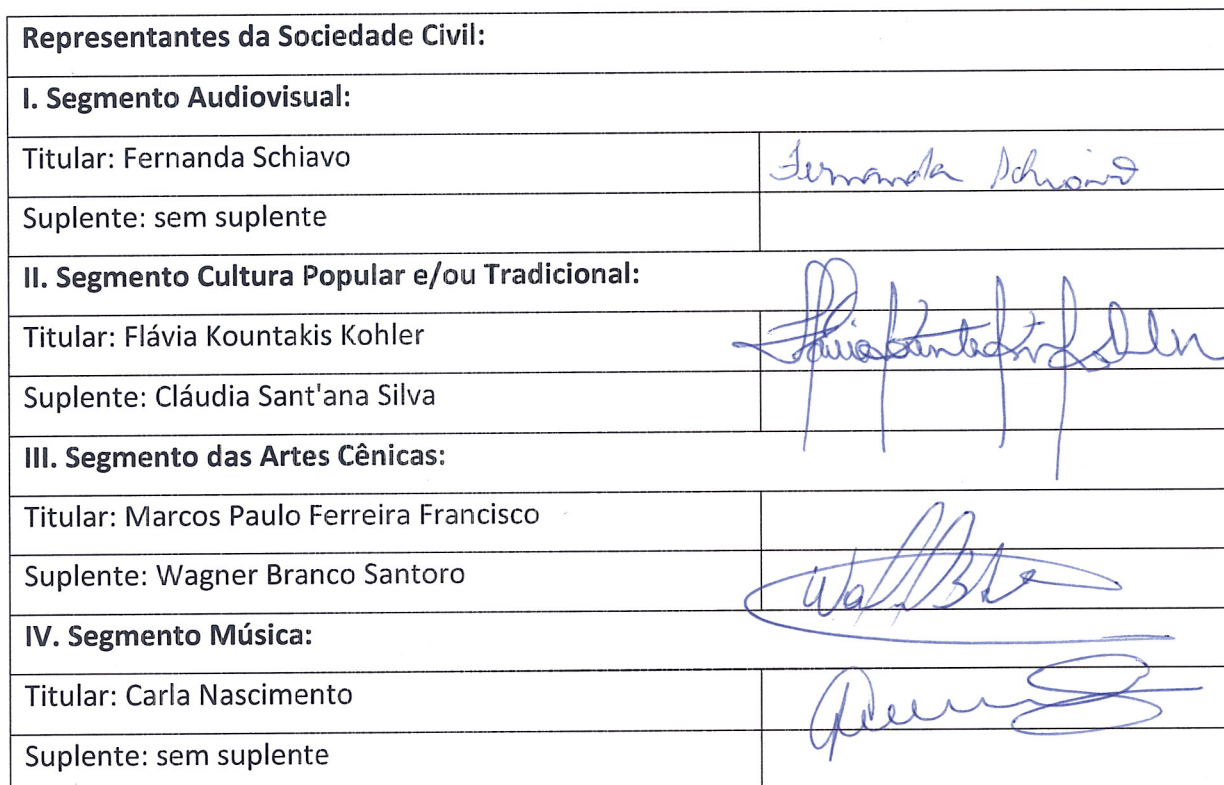 Representantes da Sociedade Civil:
I. Segmento Audiovisual:
Titular: Fernanda Schiavo Fernanda Schiavo
Suplente: sem suplente
II. Segmento Cultura Popular e/ou Tradicional:
Titular: Flávia Kountakis Kohler
Suplente: Cláudia Sant'ana Silva
III. Segmento das Artes Cênicas:
Titular: Marcos Paulo Ferreira Francisco
Suplente: Wagner Branco Santoro
IV. Segmento Música:
Titular: Carla Nascimento
Suplente: sem suplente